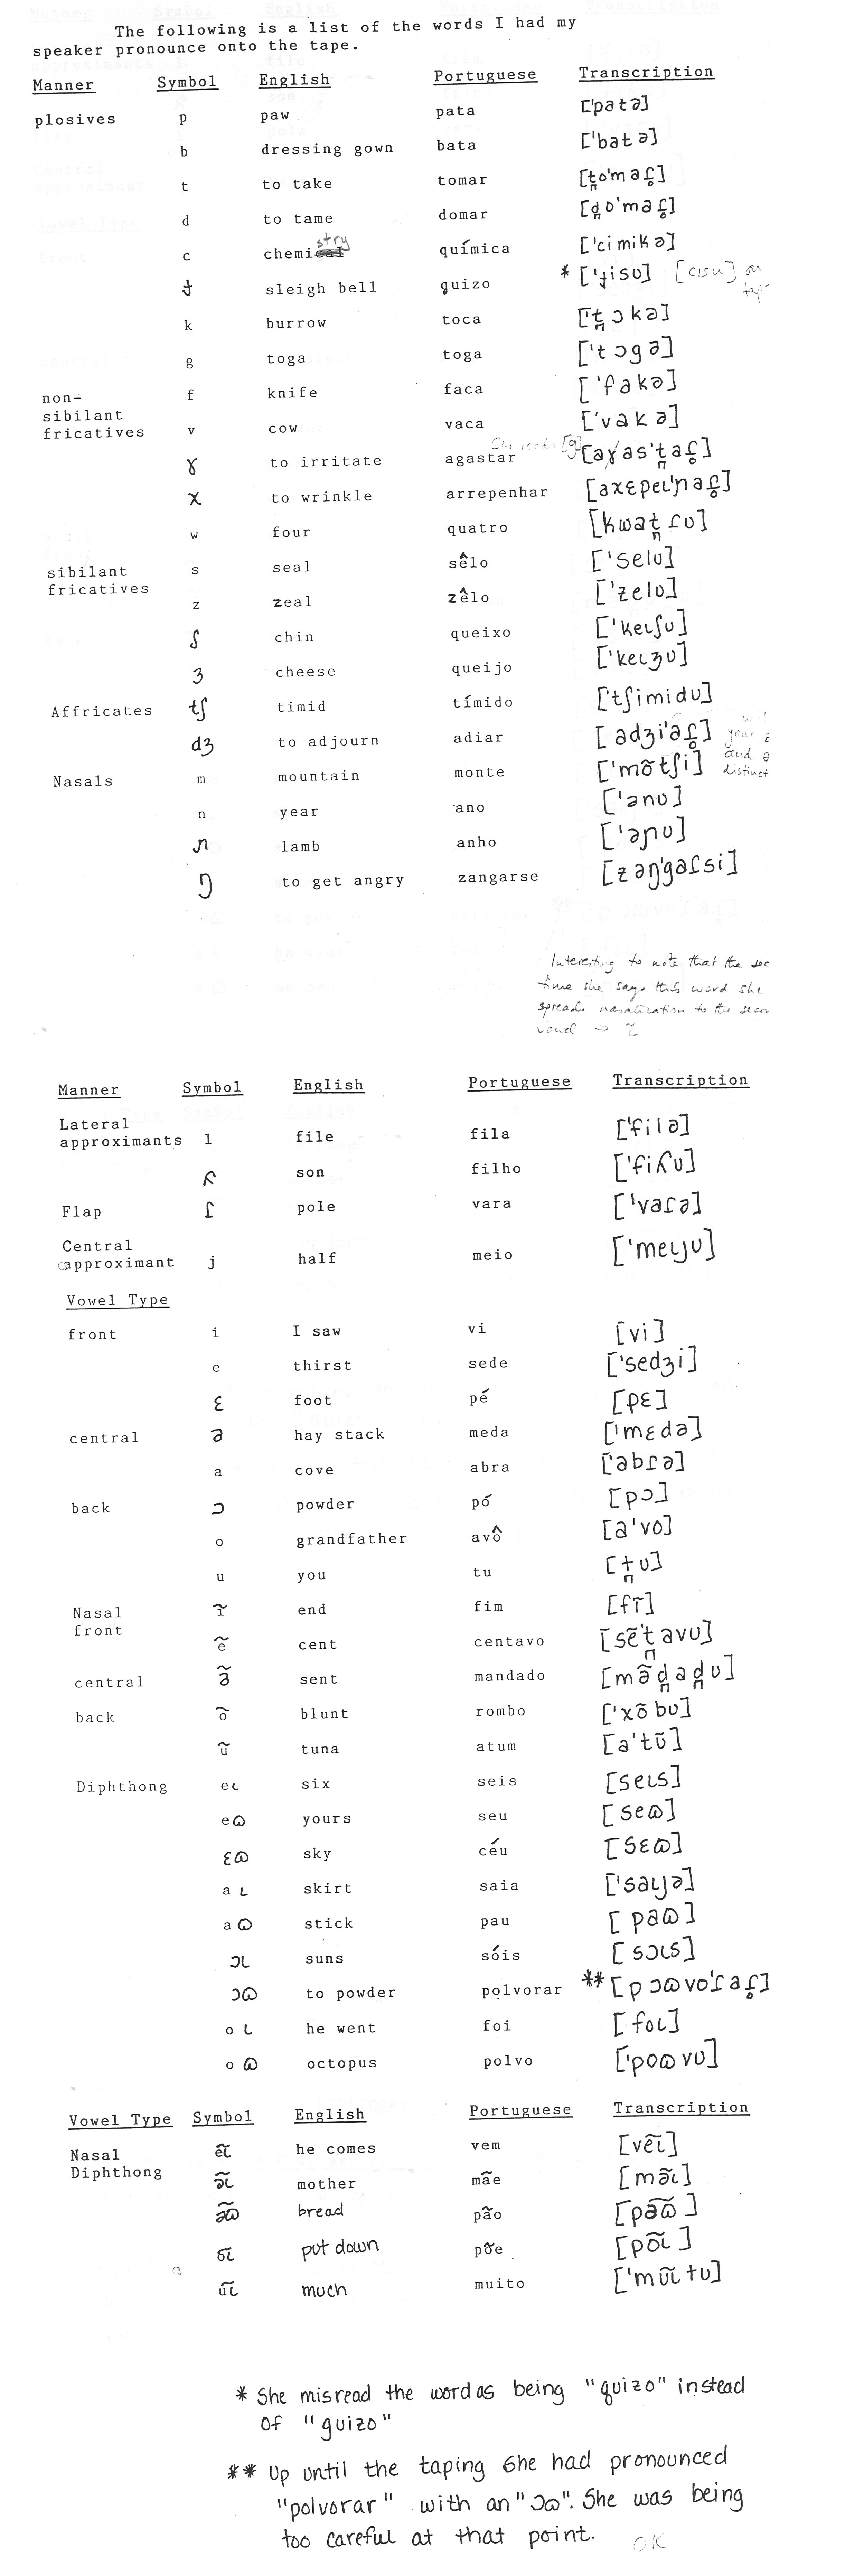 The following is a list of the words I had my
speaker pronounce onto the tape.
Manner Symbol English Portuguese Transcription
plosives p paw pata ['patə]
b dressing gown bata ['batə]
t to take tomar [t̪o'maɾ̥]
d to tame domar [d̪o'maɾ̥]
c chemistry química ['cimikə]
ɟ sleigh bell guizo * ['ɟisʊ] [cisu] on
k burrow toca ['t̪ɔkə]
g toga toga ['tɔgə]
non-
f knife faca ['fakə]
sibilant
fricatives v cow vaca ['vakə]
ɣ to irritate agastar [aɣas't̪aɾ̥]
x to wrinkle arrepenhar [axɛpeɩ'ɲaɾ̥]
w four quatro [kwat̪ɾʊ]
sibilant s seal sêlo ['selʊ]
fricatives
z zeal zêlo ['zelʊ]
ʃ chin queixo ['keɩʃʊ]
ʒ cheese queijo ['keɩʒʊ]
Affricates tʃ timid tímido ['tʃimidʊ]
dʒ to adjourn adiar [adʒi'aɾ̥] your
and ə
Nasals m mountain monte ['mõtʃi] distinct
n year ano ['ənʊ]
ɲ lamb anho ['əɲʊ]
ŋ to get angry zangarse [zəŋ'gaɾsi]
Interesting to note that the
time she says this word she
spreads nasalization to the
vowel → ɩ̃
Manner Symbol English Portuguese Transcription
Lateral
approximants l file fila ['filə]
ʎ son filho ['fiʎʊ]
Flap ɾ pole vara ['vaɾə]
Central
approximant j half meio ['meɩjʊ]
Vowel Type
front i I saw vi [vi]
e thirst sede ['sedʒi]
ɛ foot pé [pɛ]
central ə hay stack meda ['mɛdə]
a cove abra ['abɾə]
back ɔ powder pó [pɔ]
o grandfather avô [a'vo]
u you tu [t̪ʊ]
Nasal ĩ end fim [fĩ]
front
ẽ cent centavo [sẽ't̪avʊ]
central ə̃ sent mandado [mə̃d̪ad̪ʊ]
back õ blunt rombo ['xõbʊ]
ũ tuna atum [a'tũ]
Diphthong eɩ six seis [seɩs]
eɷ yours seu [seɷ]
ɛɷ sky céu [sɛɷ]
aɩ skirt saia ['saɩjə]
aɷ stick pau [paɷ]
ɔɩ suns sóis [sɔɩs]
ɔɷ to powder polvorar ** [pɔɷvo'ɾaɾ̥]
oɩ he went foi [foɩ]
oɷ octopus polvo ['poɷvʊ]
Vowel Type Symbol English Portuguese Transcription
Nasal ẽɩ̃ he comes vem [vẽɩ̃]
Diphthong
ə̃ɩ̃ mother mãe [mə̃ɩ̃]
ə̃ɷ̃ bread pão [pə̃ɷ̃]
õɩ̃ put down põe [põɩ̃]
ũɩ̃ much muito ['mũɩ̃tʊ]
* She misread the word as being "quizo" instead
of "guizo"
** Up until the taping she had pronounced
"polvorar" with an "ɔɷ". She was being
too careful at that point. OK